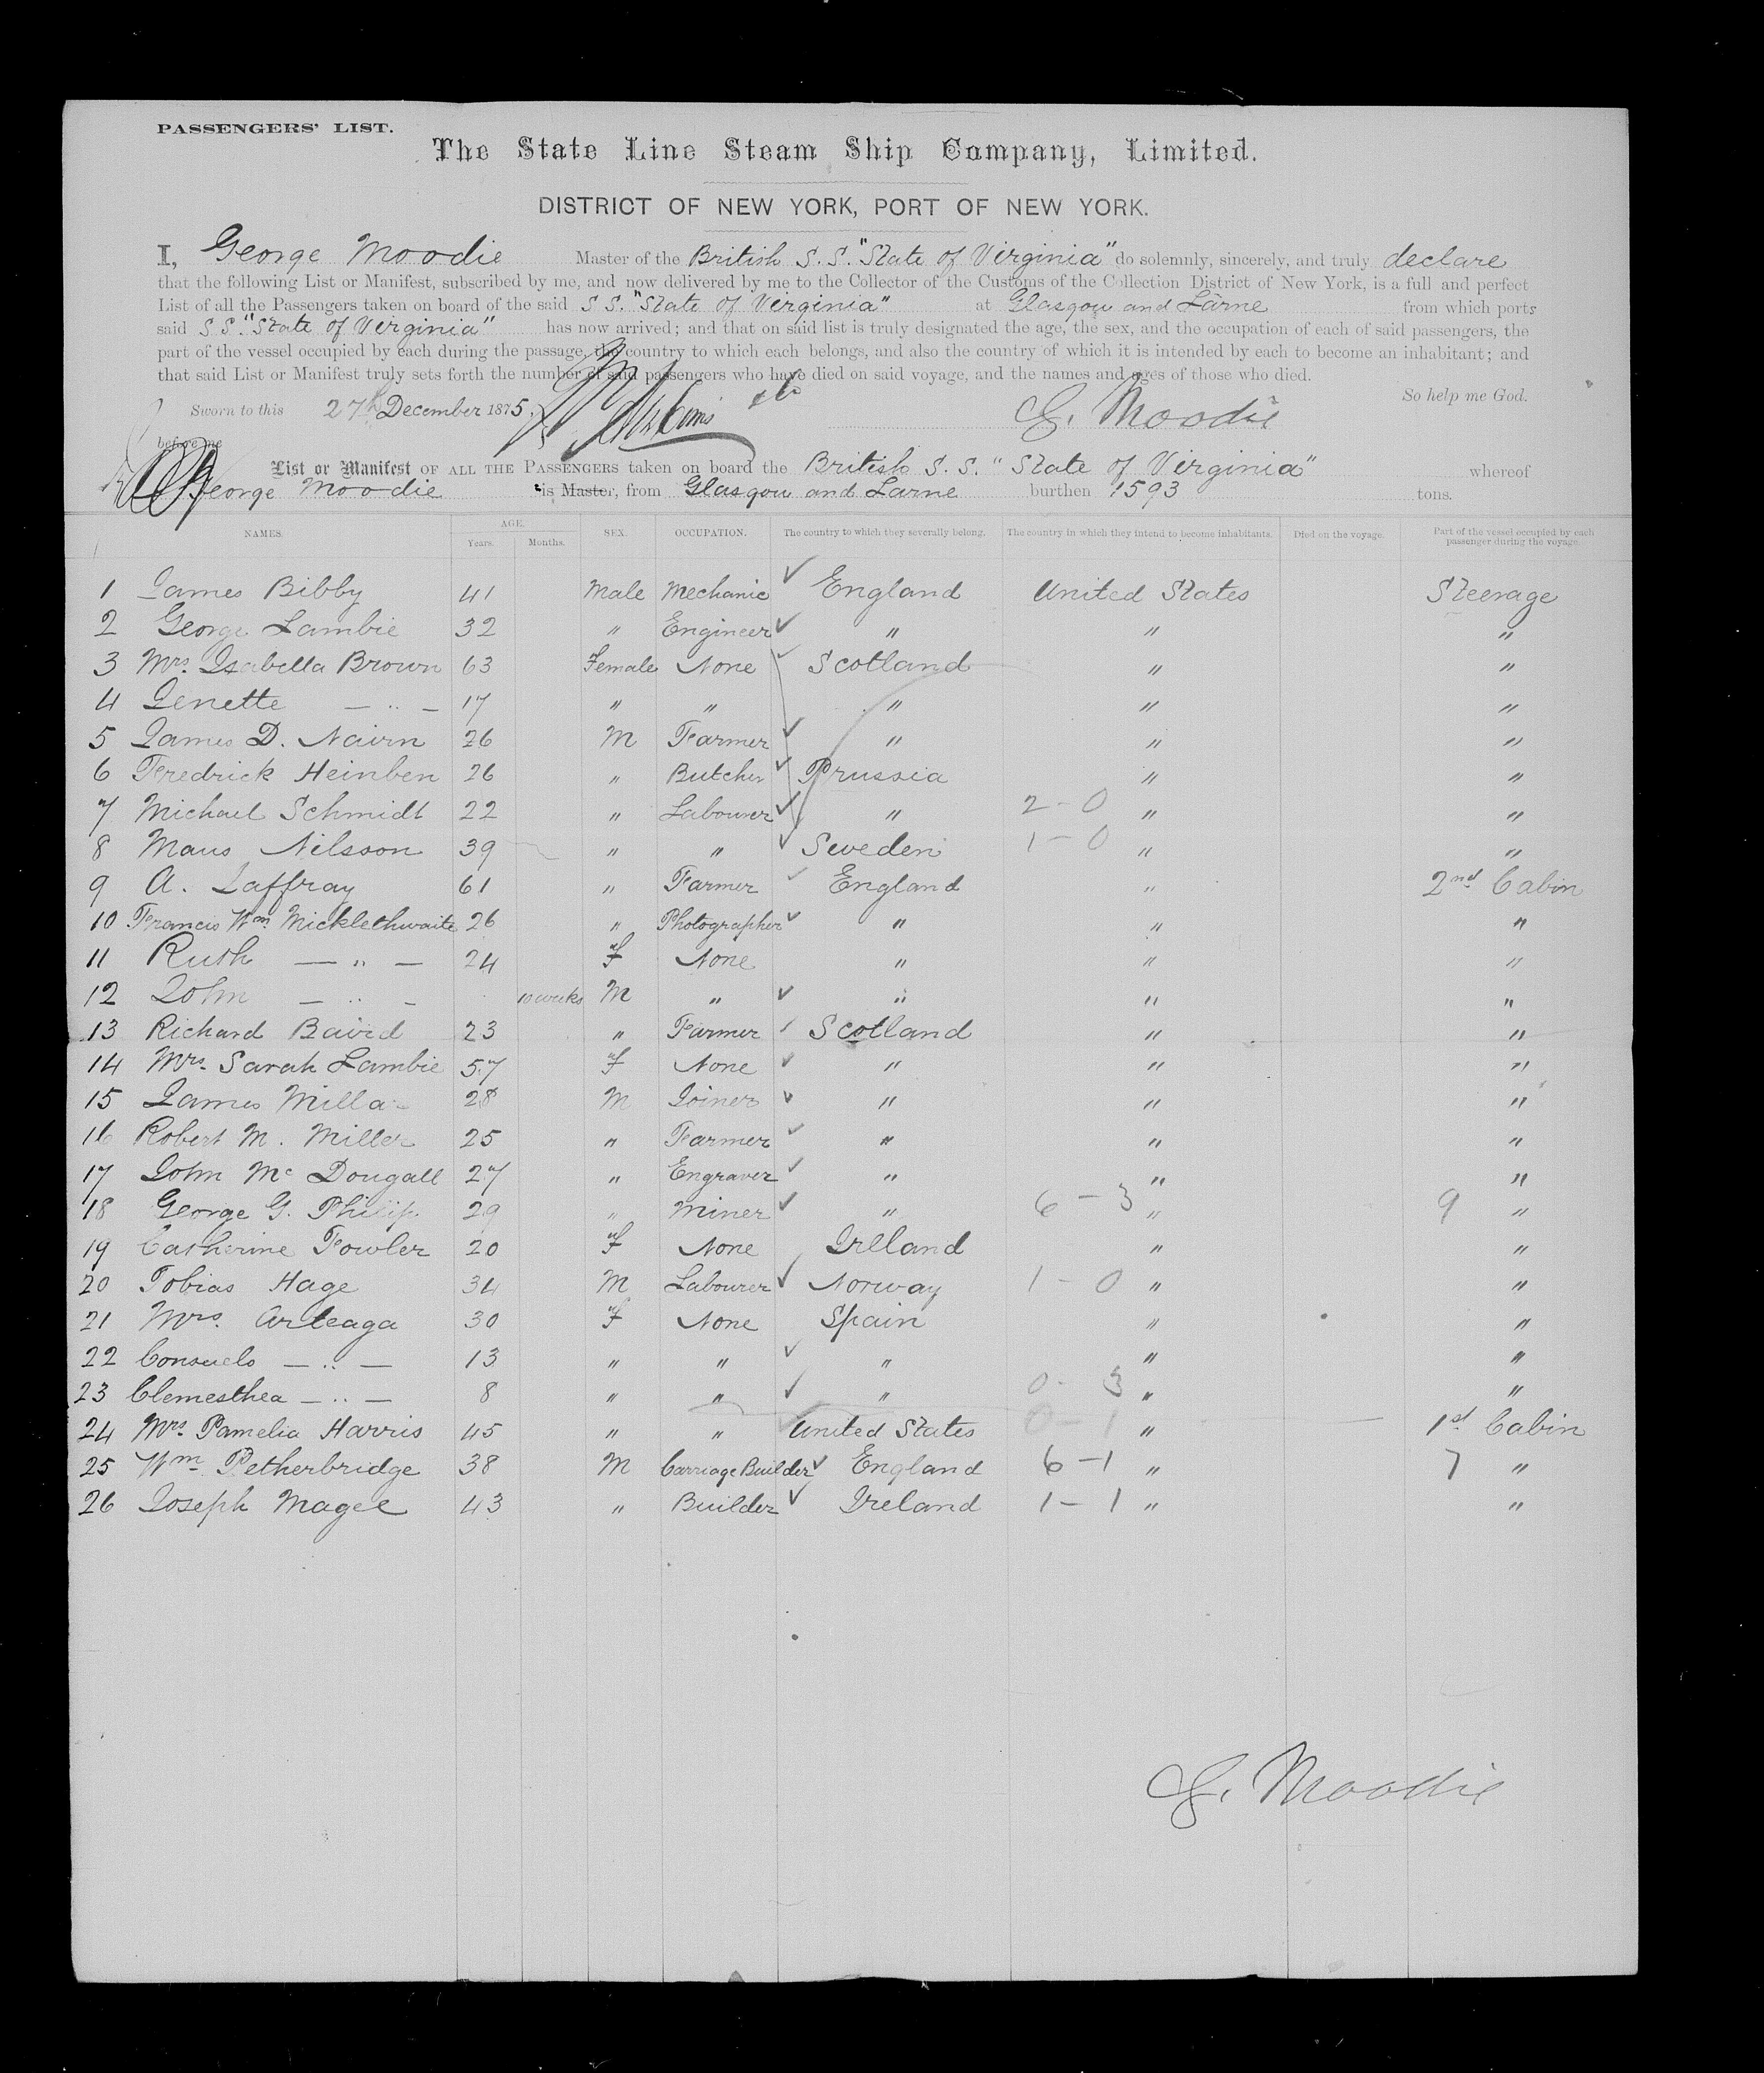 PASSENGERS' LIST.
The State Line Steam Ship Company, Limited.
DISTRICT OF NEW YORK, PORT OF NEW YORK.
I, George Moodie Master of the British S.S. "State of Virginia" do solemnly, sincerely, and truly declare
that the following List or Manifest, subscribed by me, and now delivered by me to the Collector of the Customs of the Collection District of New York, is a full and perfect
List of all the Passengers taken on board of the said S S. "State of Virginia" at Glasgow and Larne from which ports
said S.S. "State of Virginia" has now arrived; and that on said list is truly designated the age, the sex, and the occupation of each of said passengers, the
part of the vessel occupied by each during the passage, the country to which each belongs, and also the country of which it is intended by each to become an inhabitant; and
that said List or Manifest truly sets forth the number of said passengers who have died on said voyage, and the names and ages of those who died.
So help me God.
Sworn to this 27th December 1875,
G. Moodie
before me
List or Manifest OF ALL THE PASSENGERS taken on board the British S. S. "State of Virginia" whereof
George Moodie is Master, from Glasgow and Larne burthen 1593 tons.
NAMES. AGE. Years. Months. SEX. OCCUPATION. The country to which they severally belong. The country in which they intend to become inhabitants. Died on the voyage. Part of the vessel occupied by each passenger during the voyage.
1 James Bibby 41 Male Mechanic England United States Steerage
2 George Lambie 32 " Engineer " " "
3 Mrs. Isabella Brown 63 Female None Scotland " "
4 Jenette — " — 17 " " " " "
5 James D. Nairn 26 M Farmer " " "
6 Fredrick Heinben 26 " Butcher Prussia " "
7 Michael Schmidt 22 " Labourer " 2-0 " "
8 Maus Nilsson 39 " " Sweden 1-0 " "
9 A. Jaffray 61 " Farmer England " 2nd Cabin
10 Francis Wm. Micklethwaite 26 " Photographer " " "
11 Ruth — " — 24 f None " " "
12 John — " — 10 weeks M " " " "
13 Richard Baird 23 " Farmer Scotland " "
14 Mrs. Sarah Lambie 57 f None " " "
15 James Millar 28 M Joiner " " "
16 Robert M. Miller 25 " Farmer " " "
17 John Mc Dougall 27 " Engraver " " "
18 George G. Philip 29 " Miner " 6-3 " 9 "
19 Catherine Fowler 20 f None Ireland " "
20 Tobias Hage 34 M Labourer Norway 1-0 " "
21 Mrs. Arteaga 30 f None Spain " "
22 Consuelo — " — 13 " " " " "
23 Clemesthea — " — 8 " " " 0-3 " "
24 Mrs. Pamelia Harris 45 " " United States 0-1 " 1st Cabin
25 Wm. Petherbridge 38 M Carriage Builder England 6-1 " 7 "
26 Joseph Magee 43 " Builder Ireland 1-1 " "
G. Moodie